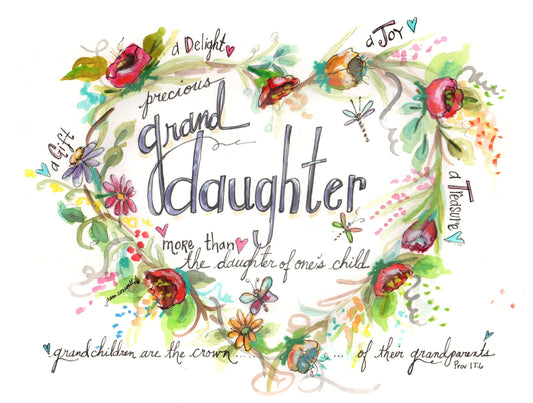 a Delight
a Joy
precious
grand
daughter
a Gift
a Treasure
more than
the daughter of one's child
grandchildren are the crown...... ... of their grandparents
Prov 17:6